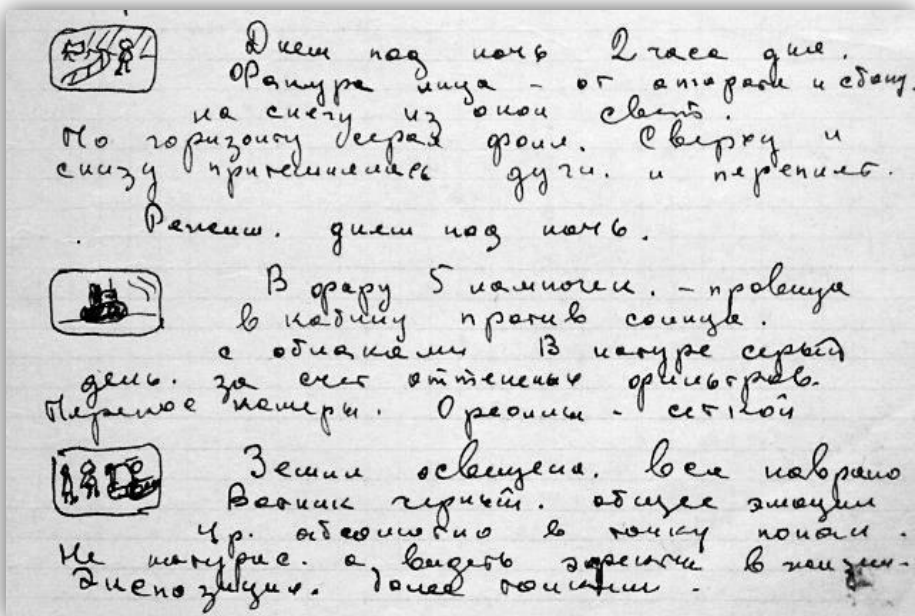 Днем под ночь 2 часа дня.
Фактура лица - от аппарата и сбоку.
на снегу из окон свет.
По горизонту серая фолл. Сверху и
снизу притемнялись дуги. и перепил.
Режим. днем под ночь.
В фару 5 лампочек. - провода
в кабину против солнца.
с облаками В натуре серый
день. за счет оттененных фильтров.
камеры. Ореолы - сеткой
Земля освещена. все наврано
Ватник черный. общее эмоции
Чр. абсолютно в точку попал.
Не натурис. а видеть в
Экспозиция. Более